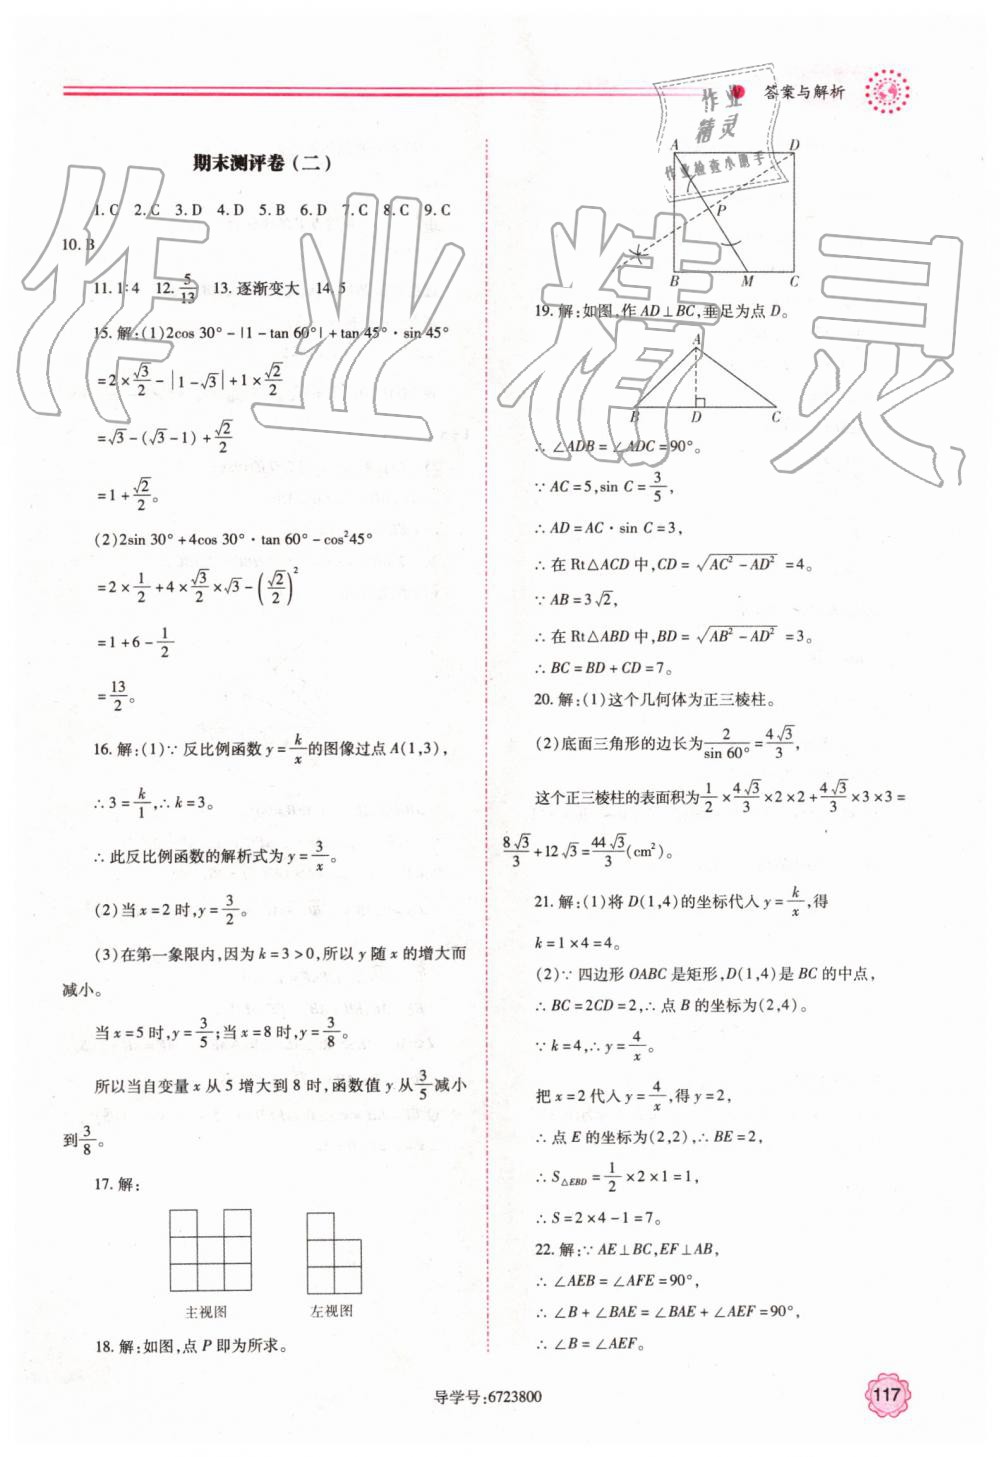 答案与解析
期末测评卷(二)
1. C 2. C 3. D 4. D 5. B 6. D 7. C 8. C 9. C
10. B
11. 1∶4 12. 5/13 13. 逐渐变大 14. 5
15. 解:(1)2cos 30° - |1 - tan 60°| + tan 45° · sin 45°
= 2 × √3/2 - |1 - √3| + 1 × √2/2
= √3 - (√3 - 1) + √2/2
= 1 + √2/2。
(2)2sin 30° + 4cos 30° · tan 60° - cos²45°
= 2 × 1/2 + 4 × √3/2 × √3 - (√2/2)²
= 1 + 6 - 1/2
= 13/2。
16. 解:(1)∵ 反比例函数 y = k/x 的图像过点 A(1,3),
∴ 3 = k/1,∴ k = 3。
∴ 此反比例函数的解析式为 y = 3/x。
(2)当 x = 2 时,y = 3/2。
(3)在第一象限内,因为 k = 3 > 0,所以 y 随 x 的增大而
减小。
当 x = 5 时,y = 3/5;当 x = 8 时,y = 3/8。
所以当自变量 x 从 5 增大到 8 时,函数值 y 从 3/5 减小
到 3/8。
17. 解:
主视图 左视图
18. 解:如图,点 P 即为所求。
作业
精灵
作业检查小助手
A D
P
B M C
19. 解:如图,作 AD⊥BC,垂足为点 D。
A
B D C
∴ ∠ADB = ∠ADC = 90°。
∵ AC = 5,sin C = 3/5,
∴ AD = AC · sin C = 3,
∴ 在 Rt△ACD 中,CD = √(AC² - AD²) = 4。
∵ AB = 3√2,
∴ 在 Rt△ABD 中,BD = √(AB² - AD²) = 3。
∴ BC = BD + CD = 7。
20. 解:(1)这个几何体为正三棱柱。
(2)底面三角形的边长为 2/sin 60° = 4√3/3,
这个正三棱柱的表面积为 1/2 × 4√3/3 × 2 × 2 + 4√3/3 × 3 × 3 =
8√3/3 + 12√3 = 44√3/3(cm²)。
21. 解:(1)将 D(1,4)的坐标代入 y = k/x,得
k = 1 × 4 = 4。
(2)∵ 四边形 OABC 是矩形,D(1,4)是 BC 的中点,
∴ BC = 2CD = 2,∴ 点 B 的坐标为(2,4)。
∵ k = 4,∴ y = 4/x。
把 x = 2 代入 y = 4/x,得 y = 2,
∴ 点 E 的坐标为(2,2),∴ BE = 2,
∴ S△EBD = 1/2 × 2 × 1 = 1,
∴ S = 2 × 4 - 1 = 7。
22. 解:∵ AE⊥BC,EF⊥AB,
∴ ∠AEB = ∠AFE = 90°,
∴ ∠B + ∠BAE = ∠BAE + ∠AEF = 90°,
∴ ∠B = ∠AEF。
作业精灵
导学号:6723800
117